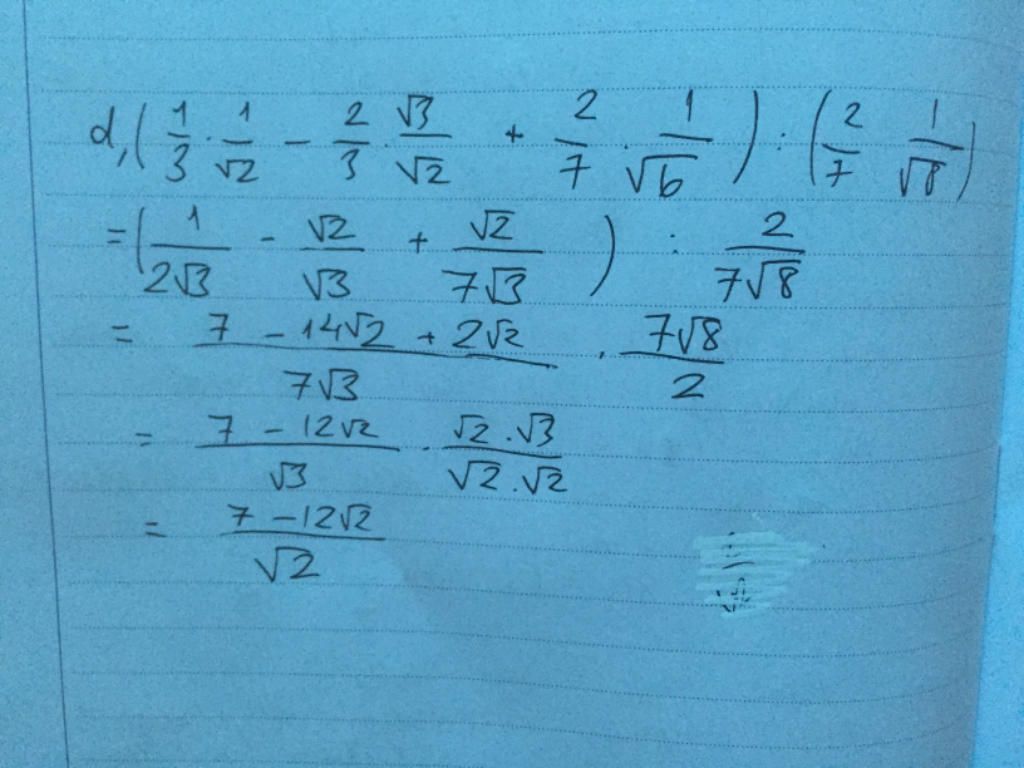 d, ( 1/3 . 1/√2 - 2/3 . √3/√2 + 2/7 . 1/√6 ) : ( 2/7 1/√8 )
= ( 1/2√3 - √2/√3 + √2/7√3 ) : 2/7√8
= 7 - 14√2 + 2√2/7√3 . 7√8/2
= 7 - 12√2/√3 . √2.√3/√2.√2
= 7 - 12√2/√2